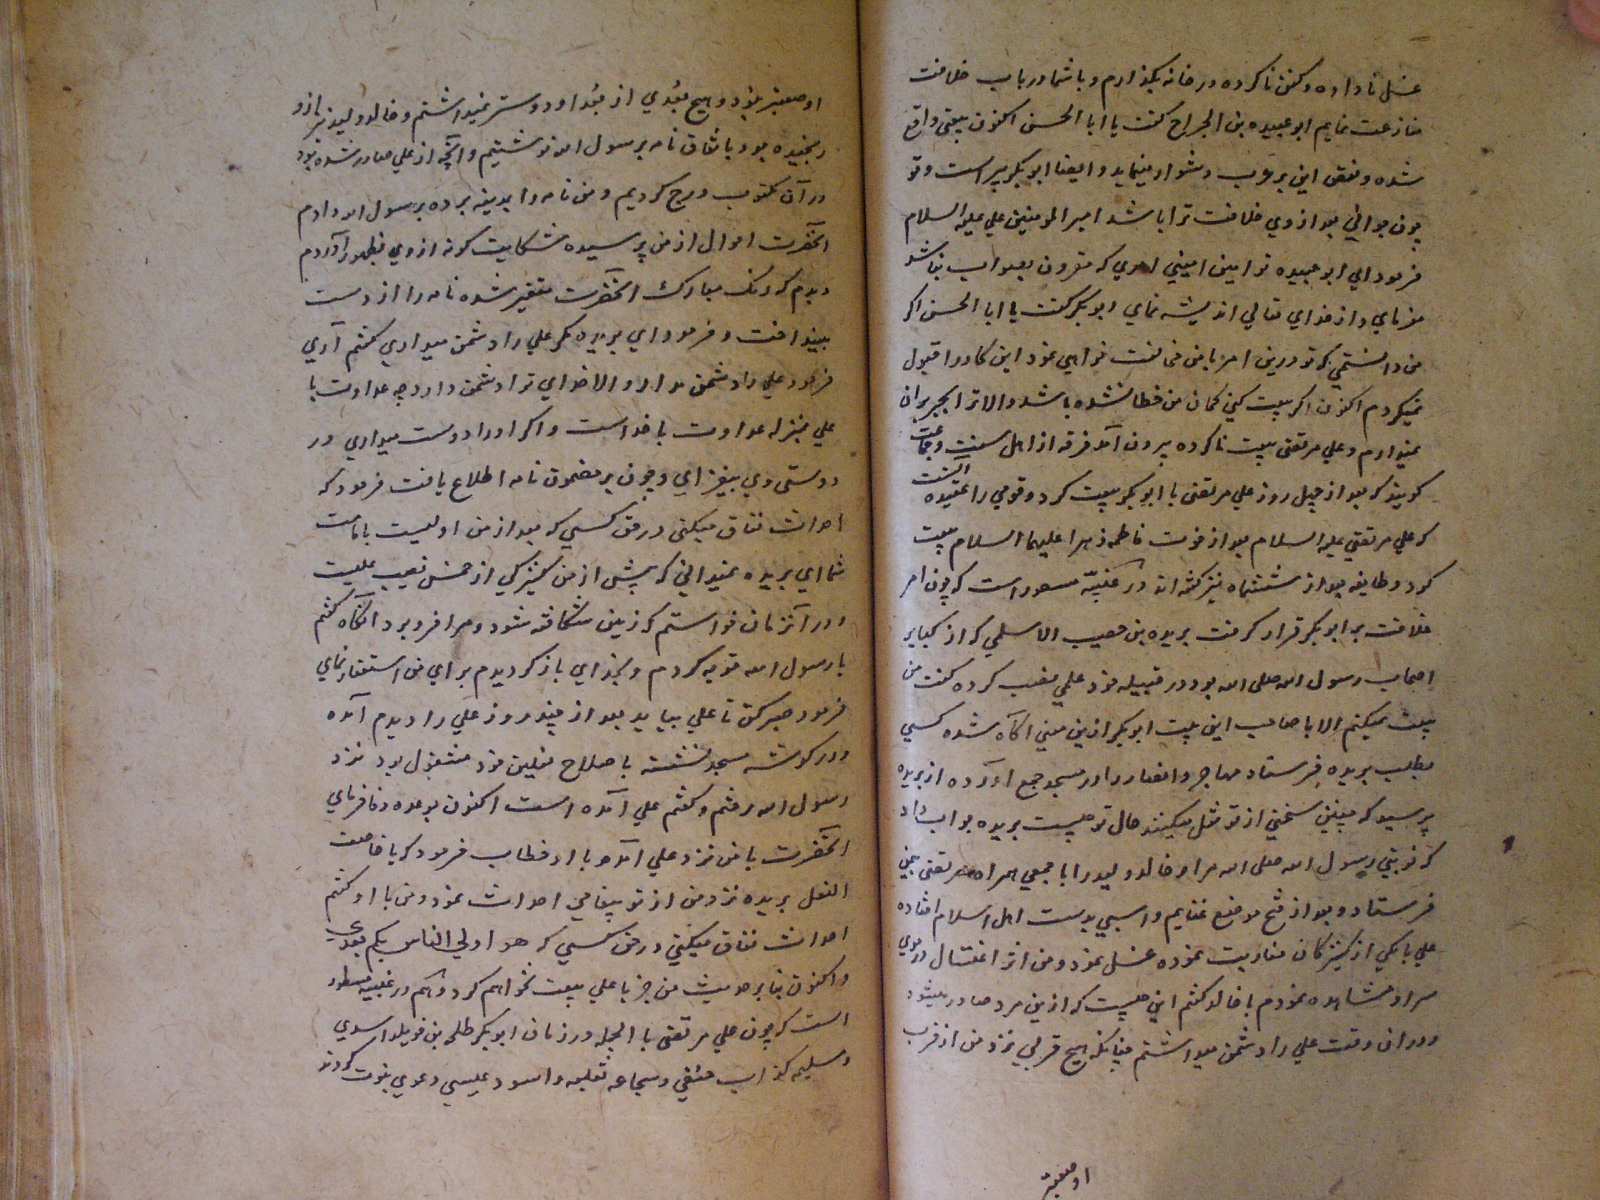 غسل ناداده و کفن ناکرده در خانه بگذارم و با شما در باب خلافت
منازعت نمایم ابو عبیده بن الجراح گفت یا ابا الحسن اکنون بیعتی واقع
شده و نقض این بر عرب دشوار مینماید و ایضا ابوبکر پیر است و تو
چون جوانی بعد از وی خلافت ترا باشد امیر المومنین علی علیه السلام
فرمود ای ابو عبیده تو امین امینی امری که مقرون بصواب نباشد
مفرمای و از خدای تعالی اندیشه نمای ابوبکر گفت یا ابا الحسن اگر
من دانستمی که تو درین امر با من مخالفت خواهی نمود این کار را قبول
نمیکردم اکنون اگر بیعت کنی گمان من خطا نشده باشد والا ترا بجبر بران
نمیدارم و علی مرتضی بیعت ناکرده بیرون آمد فرقه از اهل سنت و جماعت
گویند که بعد از چهل روز علی مرتضی با ابوبکر بیعت کرد و قومی را عقیده آنست
که علی مرتضی علیه السلام بعد از فوت فاطمه زهرا علیهما السلام بیعت
کرد و طایفه بعد از ششماه نیز گفته اند در غنیه مسطور است که چون امر
خلافت بر ابوبکر قرار گرفت بریده بن حصیب الاسلمی که از کبایر
اصحاب رسول الله صلی الله بود در قبیله خود علمی نصب کرده گفت من
بیعت نمیکنم الا با صاحب این بیت ابوبکر ازین معنی آگاه شده کسی
بطلب بریده فرستاد مهاجر و انصار را در مسجد جمع آورده از بریده
پرسید که چنین سخنی از تو نقل میکنند حال تو چیست بریده جواب داد
که نوبتی رسول الله صلی الله مرا و خالد ولید را با جمعی همراه مرتضی بیمن
فرستاد و بعد از فتح موضع غنایم و اسبی بدست اهل اسلام افتاده
علی با یکی از کنیزکان مقاربت نموده غسل نمود و من اثر اغتسال در موی
سر او مشاهده نمودم با خالد گفتم این چیست که ازین مرد صادر میشود
و در ان وقت علی را دشمن میداشتم چنانکه هیچ قربی نزد من از قرب
او صعبتر
او صعبتر نبود و هیچ بعدی از بعد او دوستر نمیداشتم و خالد ولید نیز ازو
رنجیده بود باتفاق نامه برسول الله نوشتیم و آنچه از علی صادر شده بود
در آن مکتوب درج کردیم و من نامه را بمدینه برده برسول الله دادم
آنحضرت احوال از من پرسیده شکایت گونه از وی بظهور آوردم
دیدم که رنک مبارک آنحضرت متغیر شده نامه را از دست
بینداخت و فرمود ای بریده مگر علی را دشمن میداری گفتم آری
فرمود علی را دشمن مدار والا خدای ترا دشمن دارد چه عداوت با
علی بمنزله عداوت با خداست و اگر او را دوست میداری در
دوستی وی بیفزای و چون بر مضمون نامه اطلاع یافت فرمود که
احداث نفاق میکنی در حق کسی که بعد از من اولیست بامامت
شما ای بریده نمیدانی که پیش از من کنیزکی از خمس نصیب علیست
و در آنزمان خواستم که زمین شکافته شود و مرا فرو برد آنگاه گفتم
یا رسول الله توبه کردم و بخدای باز گردیدم برای من استغفار نمای
فرمود صبر کن تا علی بیاید بعد از چند روز علی را دیدم آمده
و در گوشه مسجد نشسته باصلاح نعلین خود مشغول بود نزد
رسول الله رفتم و گفتم علی آمده است اکنون بوعده وفا فرمای
آنحضرت با من نزد علی آمد و با او خطاب فرمود که یا خاصف
النعل بریده نزد من از تو پیغامی احداث نمود و من با او گفتم
احداث نفاق میکنی در حق کسی که هو اولی الناس بکم بعدی
و اکنون بنابر حدیث من جز با علی بیعت نخواهم کرد و هم در غنیه مسطور
است که چون علی مرتضی با الجله در زمان ابوبکر طلحه بن خویلد اسدی
و مسیلمه کذاب حنفی و سجاعه ثعلبه و اسود عیسی دعوی نبوت کردند